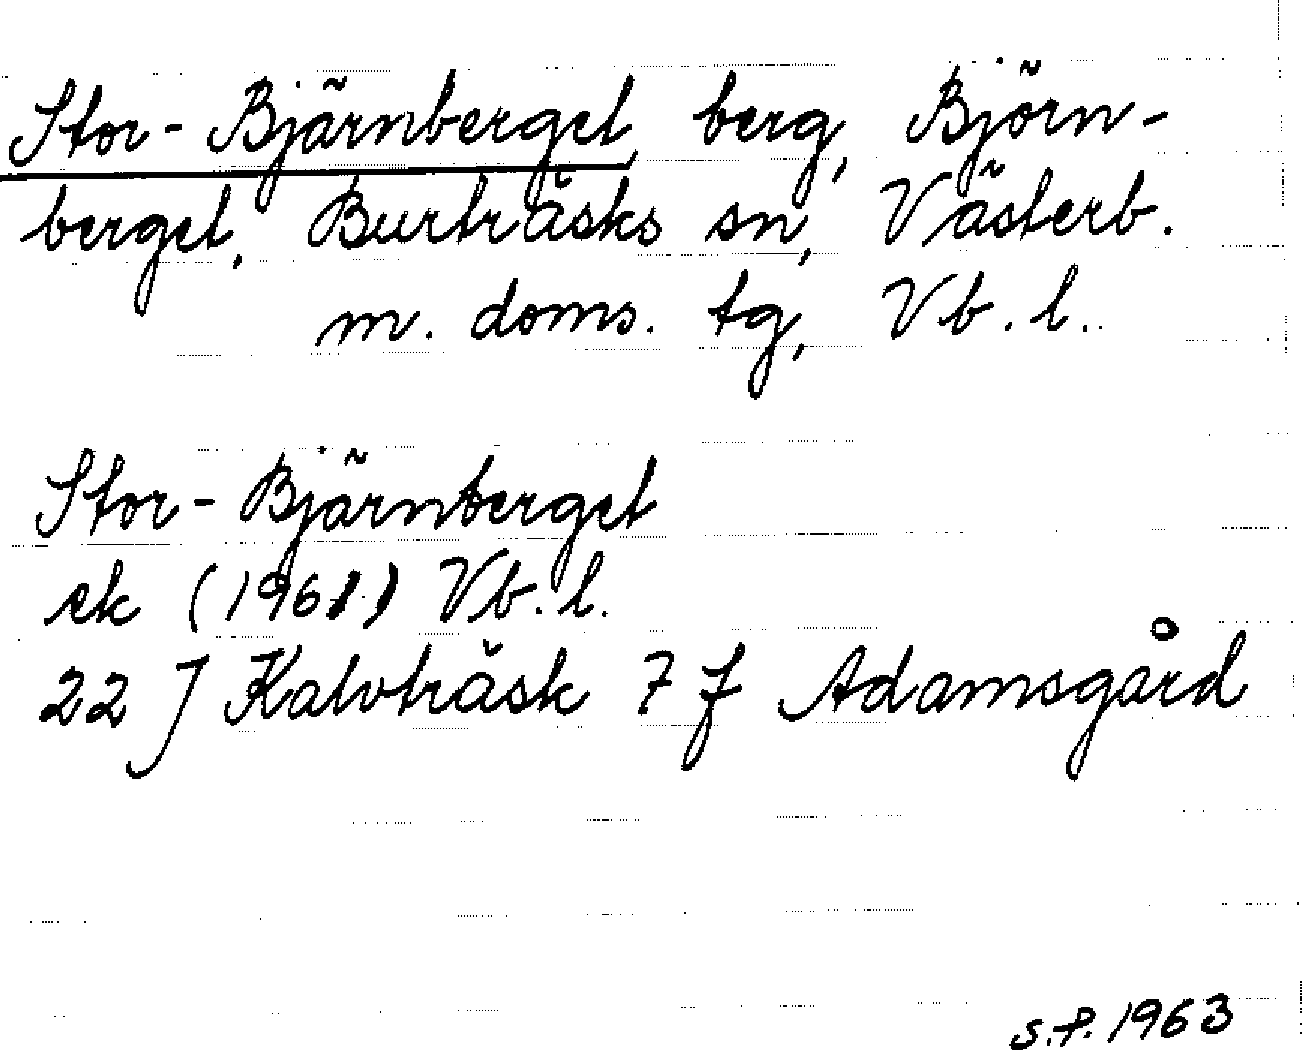 Stor-Bjärnberget, berg, Björn-
berget, Burträsks sn, Västerb.
m. doms. tg, Vb. l.
Stor-Bjärnberget
ek (1961) Vb. l.
22 J Kalvträsk 7 f Adamsgård
S.P. 1963